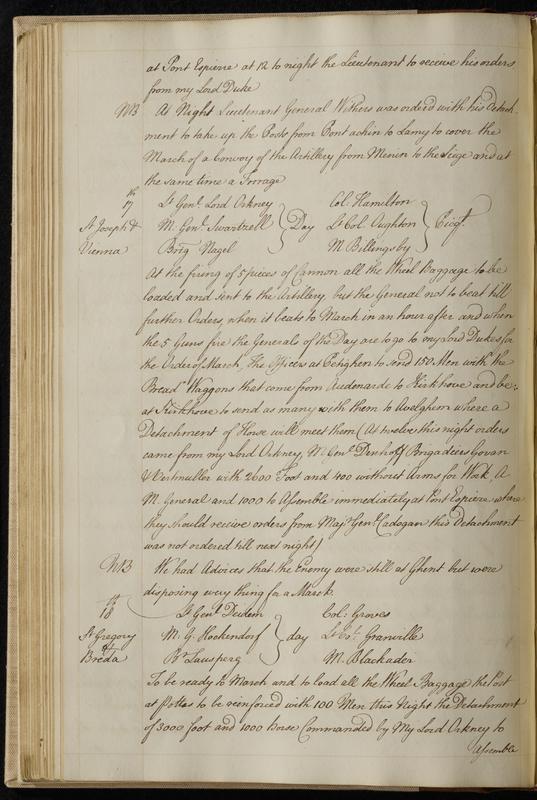 at Pont Espiere at 12 to night the Lieutenant to receive his orders
from my Lord Duke
NB At Night Lieutenant General Withers was order'd with his Detach-
ment to take up the Posts from Pont achin to Lamy to cover the
March of a Convoy of the Artillery from Menin to the Siege and at
the same time a Forrage
17th Lt Genl. Lord Orkney Col: Hamilton
St Joseph & M: Genl. Swartzell Day Lt Col. Oughton Picqt.
Vienna Brig Nagel M Billingsby
At the firing of 5 pieces of Cannon all the Wheel Baggage to be
loaded and sent to the Artillery, but the General not to beat till
further Orders, when it beats to March in an hour after and when
the 5 Guns fire the Generals of the Day are to go to my Lord Dukes for
the Order of March, The Officers at Petighen to send 150 Men with the
Bread Waggons that come from Audenarde to Kirkhove and be:
at Kirkhove to send as many with them to Avelghem where a
Detachment of Horse will meet them (At twelve this night orders
came from my Lord Orkney, M: Genl Denhoff Brigadiers Govan
& Vertmuller with 2600 Foot and 400 without Arms for Work A
M. General and 1000 to Assemble immediately at Pont Espiere where
they should receive orders from Majr Genl. Cadogan this Detachment
was not ordered till next night)
NB We had Advices that the Enemy were still at Ghent but were
disposing every thing for a March.
18th Lt Genl Dedem Col: Groves
St Gregory & M: G. Hockendorf day Lt Col. Granville
Breda Br Lausperg M. Blackader
To be ready to March and to load all the Wheel Baggage the Post
at Pottes to be reenforced with 100 Men this Night the Detachment
of 3000 foot and 1000 horse Commanded by My Lord Orkney to
Assemble